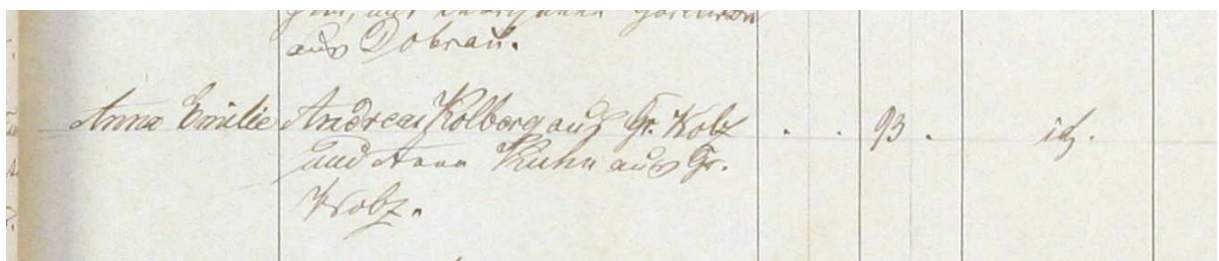 aus Dobrau.
Anna Emilie Andreas Kolberg aus Gr. Kolz . . 93 . id.
und Anna Kuhn aus Gr.
Kolz.